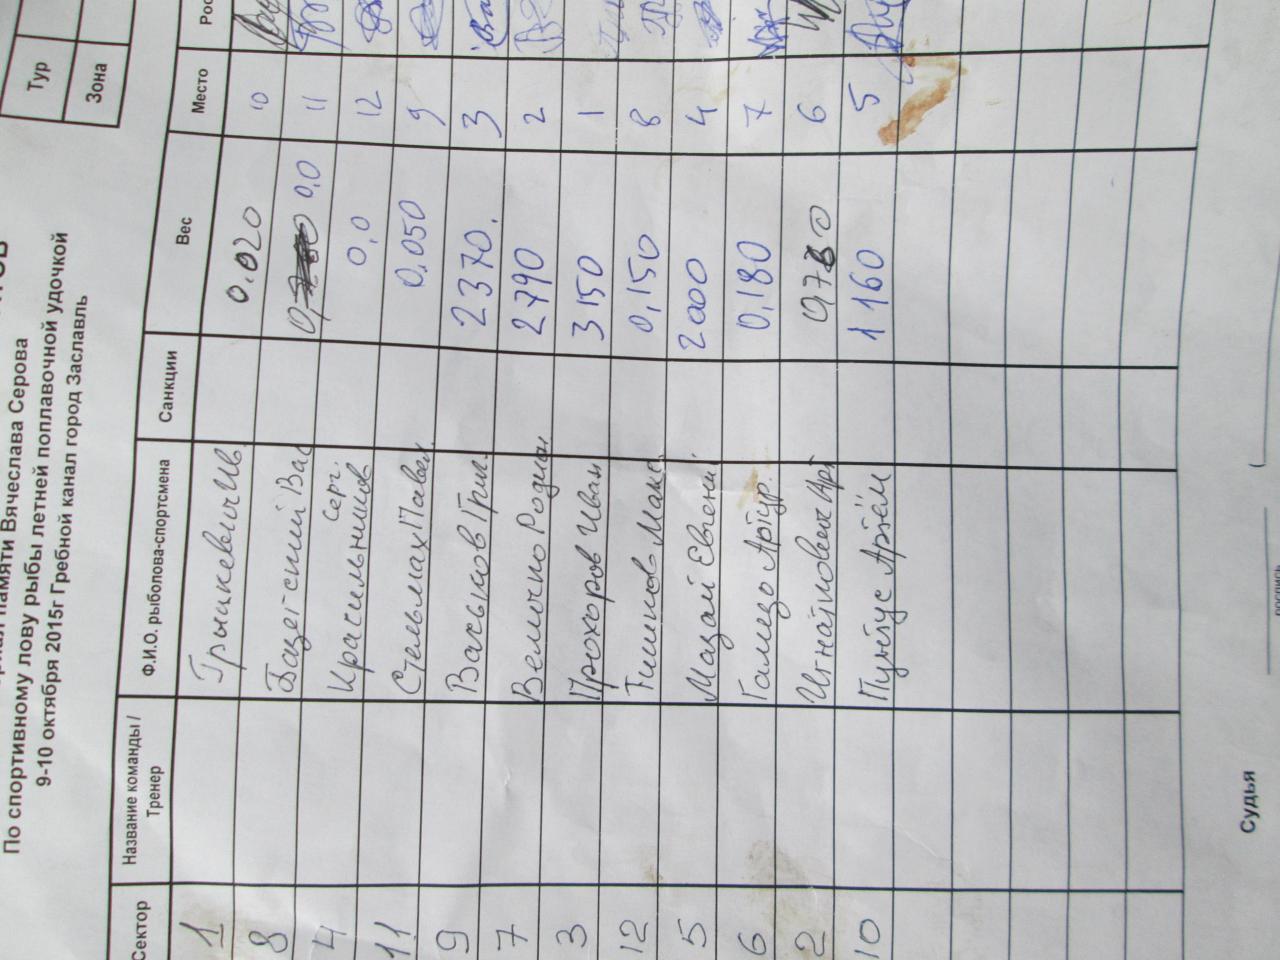 памяти Вячеслава Серова
По спортивному лову рыбы летней поплавочной удочкой
9-10 октября 2015г Гребной канал город Заславль
Тур
Зона
Сектор Название команды / Тренер Ф.И.О. рыболова-спортсмена Санкции Вес Место Рос
1 Грынкевич Ив. 0.020 10
8 Вас 0,0 11
4 Красильников Серг. 0,0 12
11 Стельмах Павел 0.050 9
9 Васьков Григ. 2370. 3
7 Величко Родион 2790 2
3 Прохоров Иван 3150 1
12 Макс. 0,150 8
5 Мазай Евгений 2000 4
6 Гамезо Артур. 0,180 7
2 Игнаткович Арт 6
10 Пунтус Артём 1160 5
Судья
(
подпись